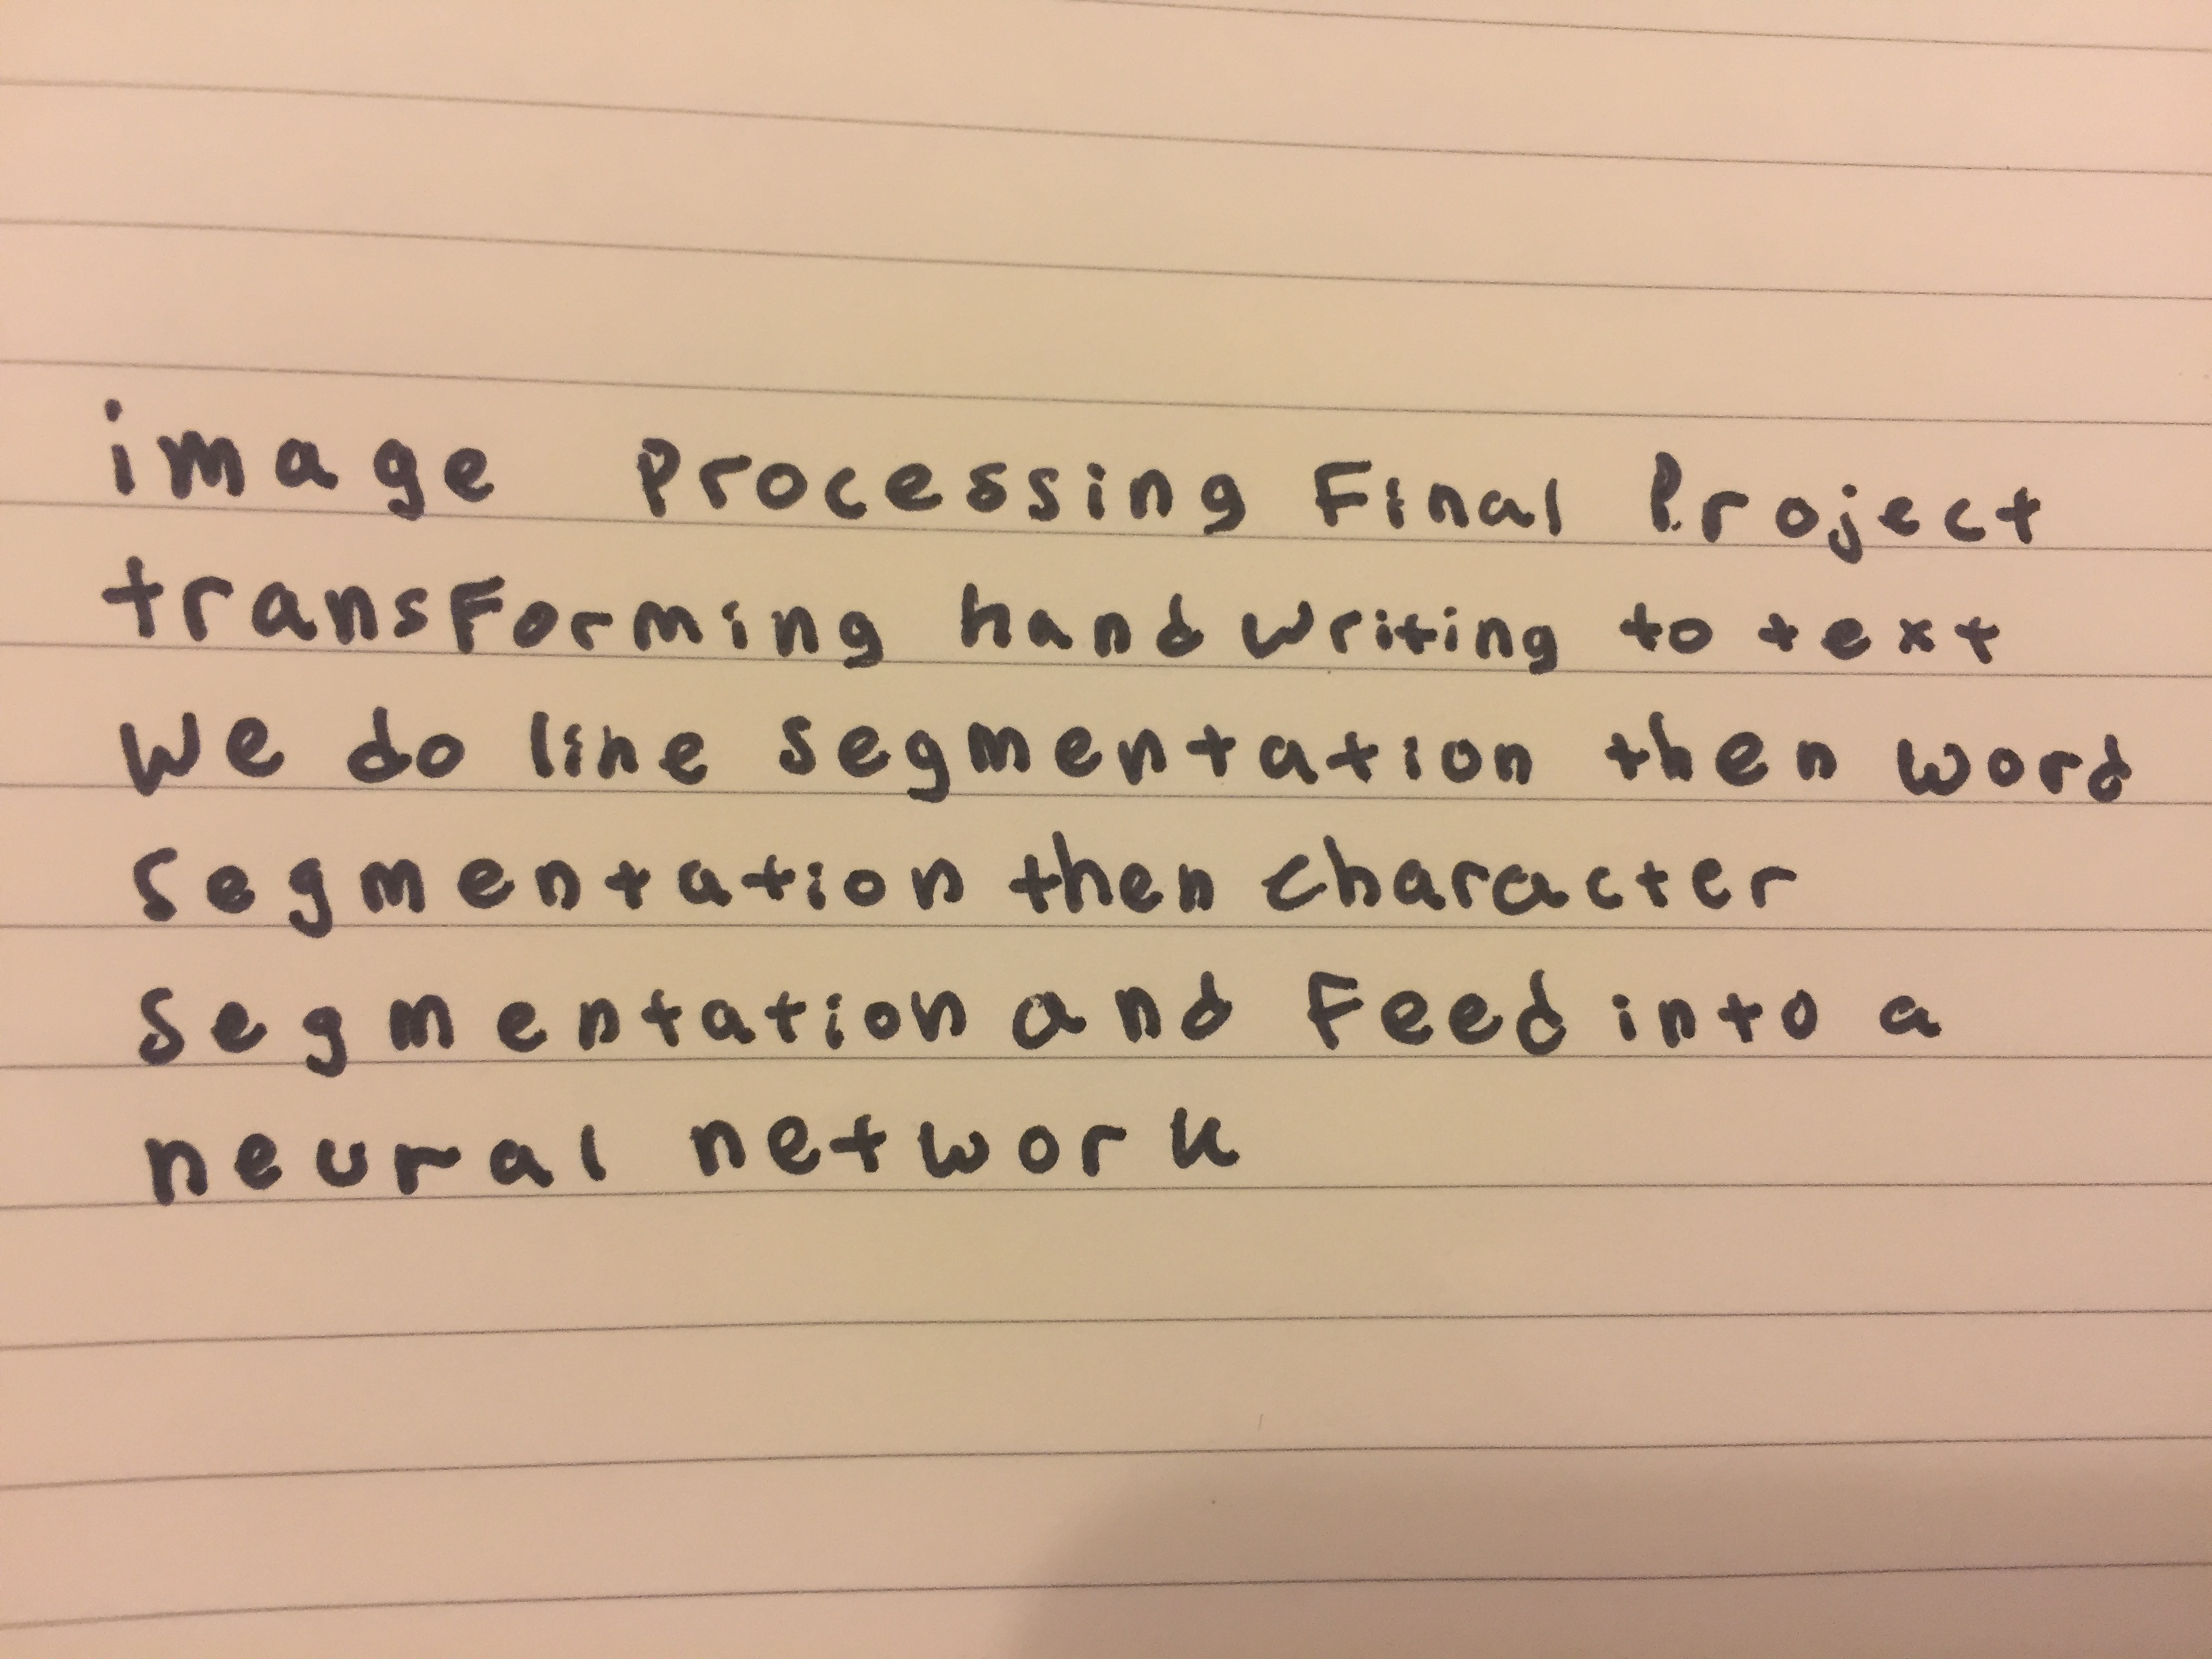 image processing Final Project
transForming hand writing to text
We do line segmentation then word
segmentation then character
segmentation and Feed into a
neural network